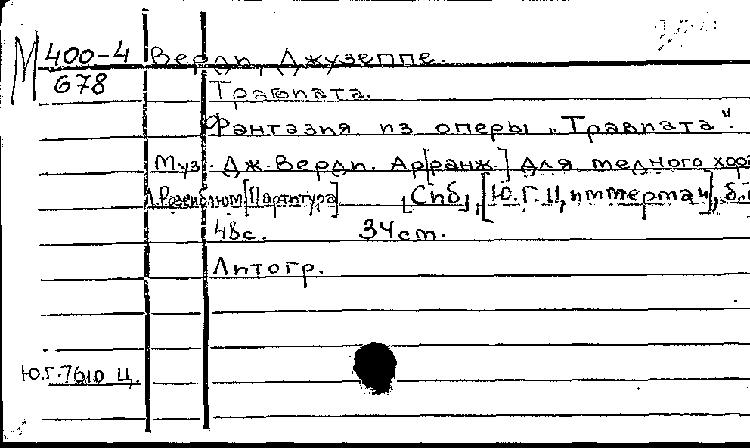 М 400-4 Верди, Джузеппе.
678
Травиата.
Фантазия из оперы „Травиата".
Муз. Дж. Верди. Ар[ранж.] для медного хора
Л. Розенблют [Партитура] [Спб], [Ю.Г. Циммерман], б.
48с. 34см.
Литогр.
Ю.Г.7610 Ц.